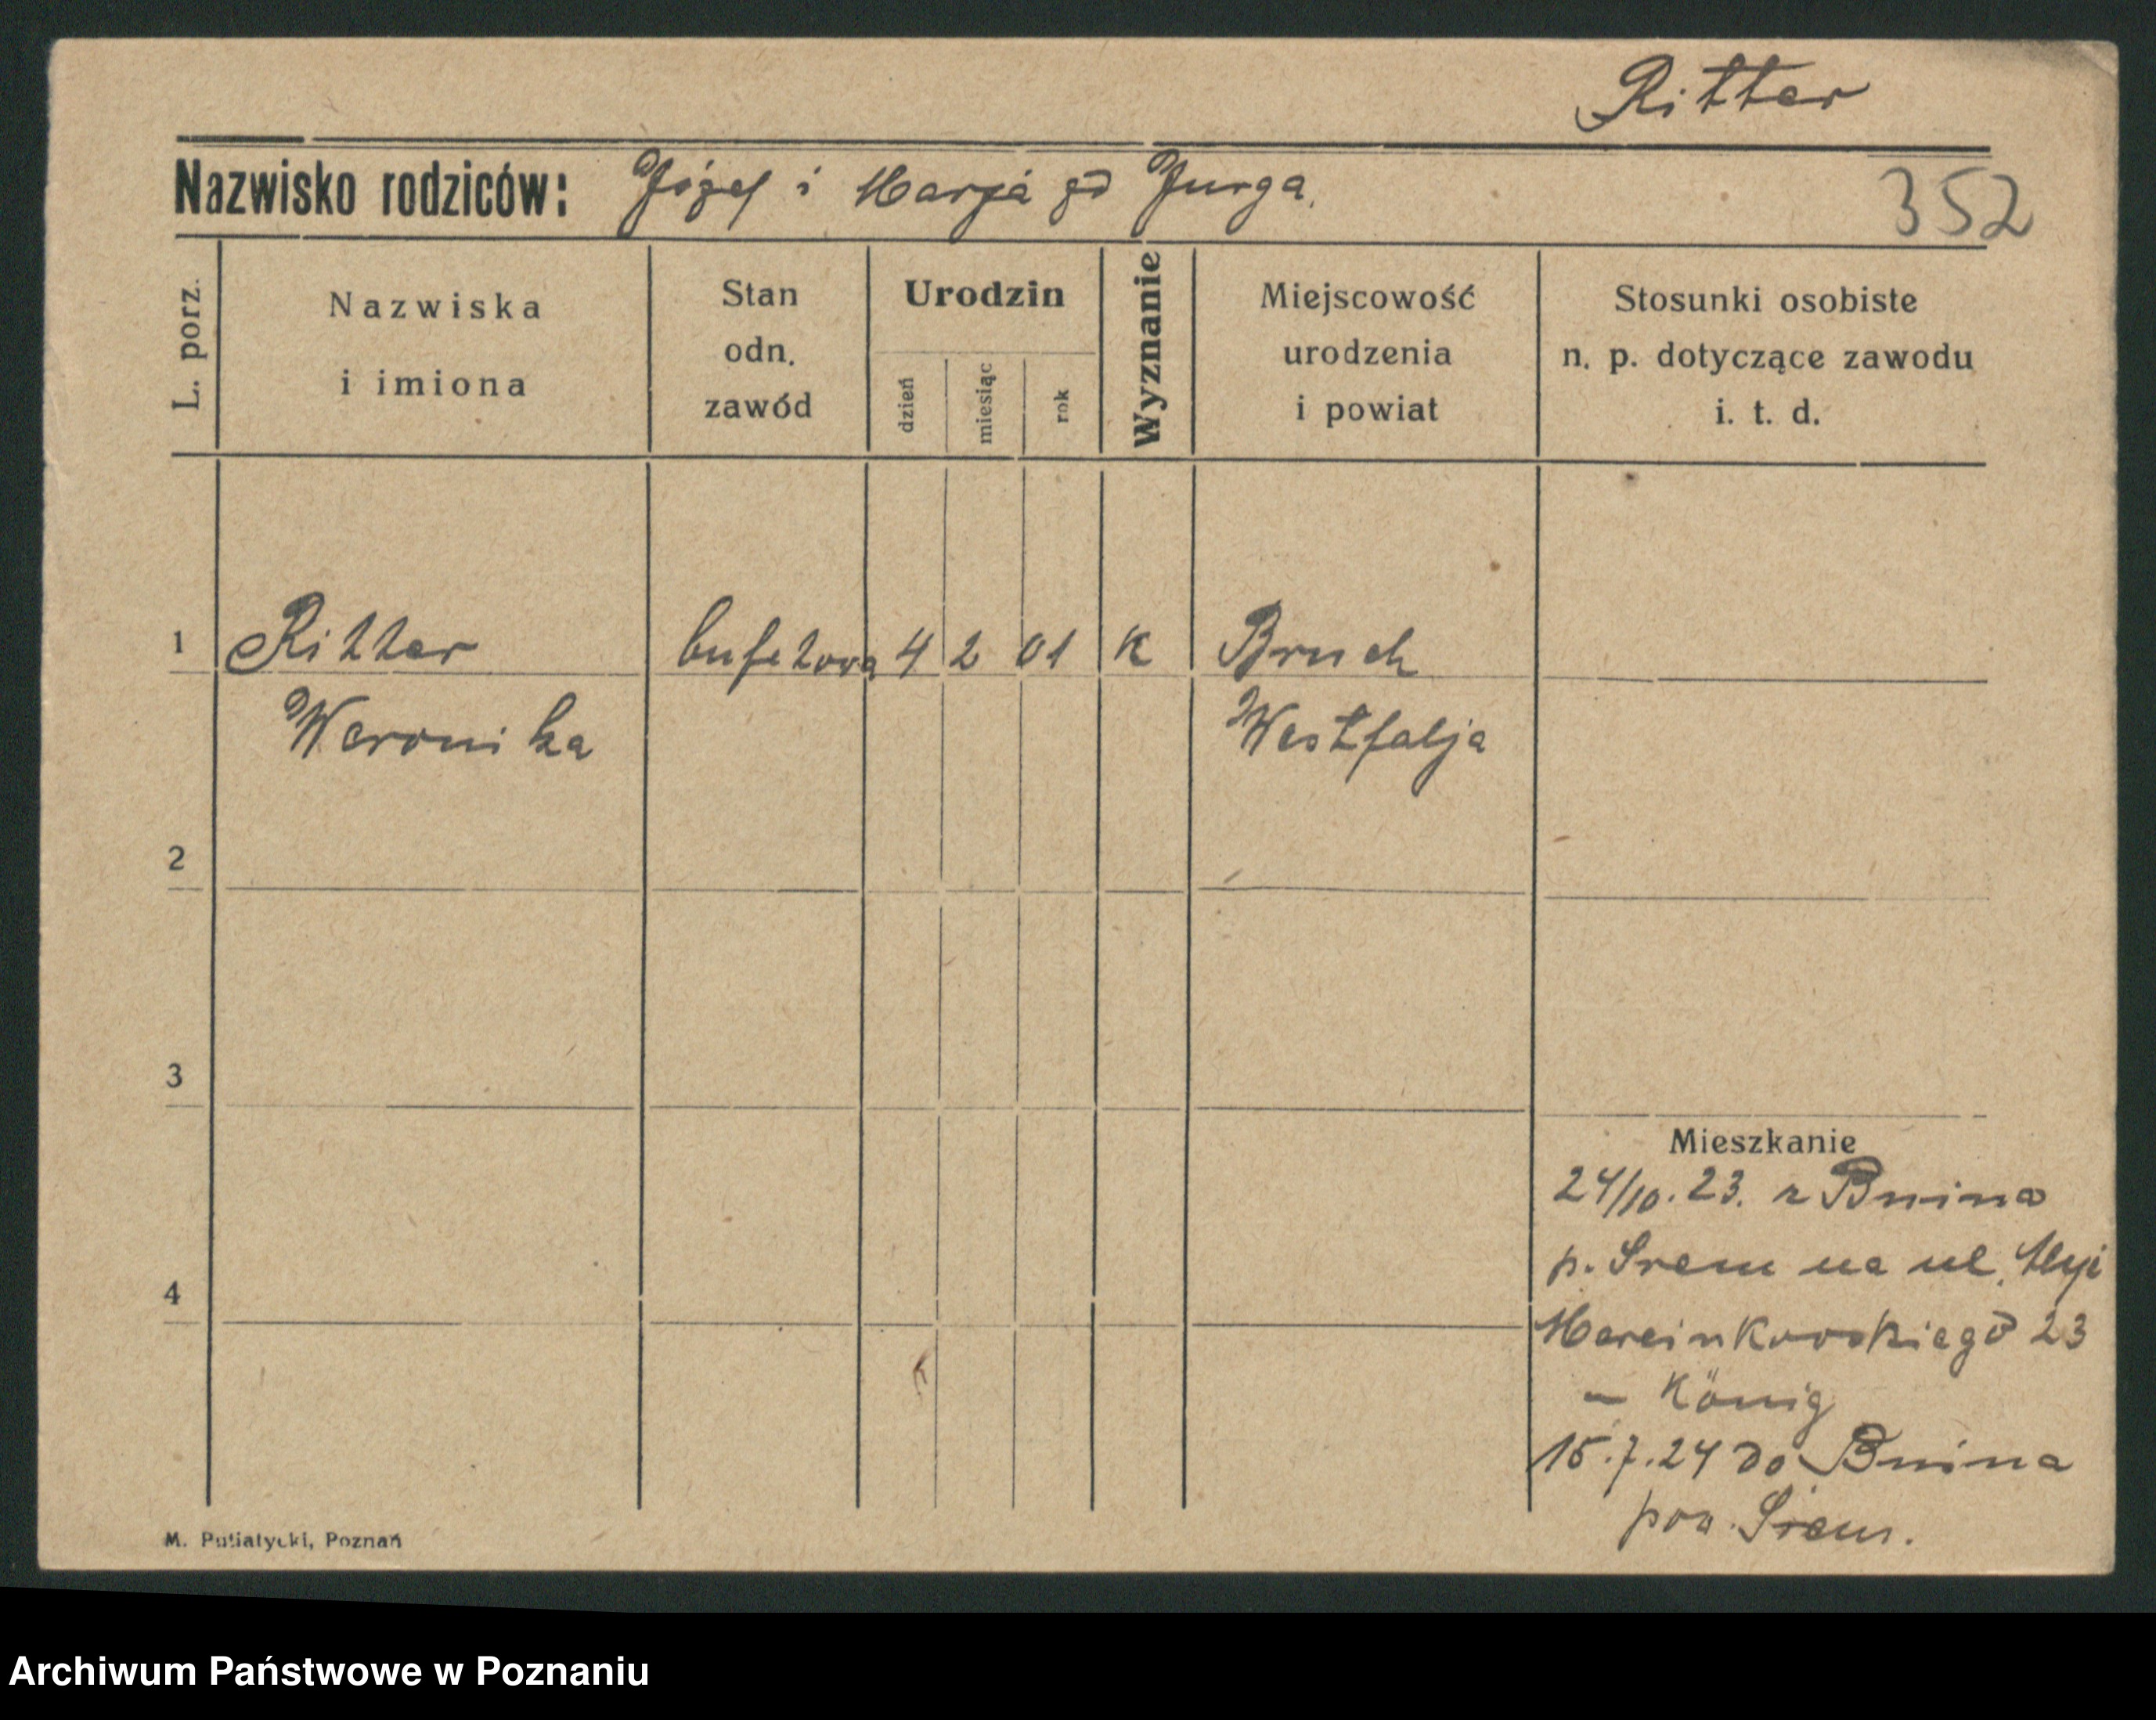 Ritter
Nazwisko rodziców: Józef i Marja zd Jurga.
352
L. porz.
Nazwiska
i imiona
Stan
odn.
zawód
Urodzin
dzień
miesiąc
rok
Wyznanie
Miejscowość
urodzenia
i powiat
Stosunki osobiste
n. p. dotyczące zawodu
i. t. d.
1 Ritter bufetowa 4 2 01 K Bruch
Weronika Westfalja
2
3
Mieszkanie
24/10. 23. z Bnina
p. Śrem na ul.
4
Marcinkowskiego 23
- König
15.7.24 do Bnina
pow. Śrem.
M. Putiatycki, Poznań
Archiwum Państwowe w Poznaniu